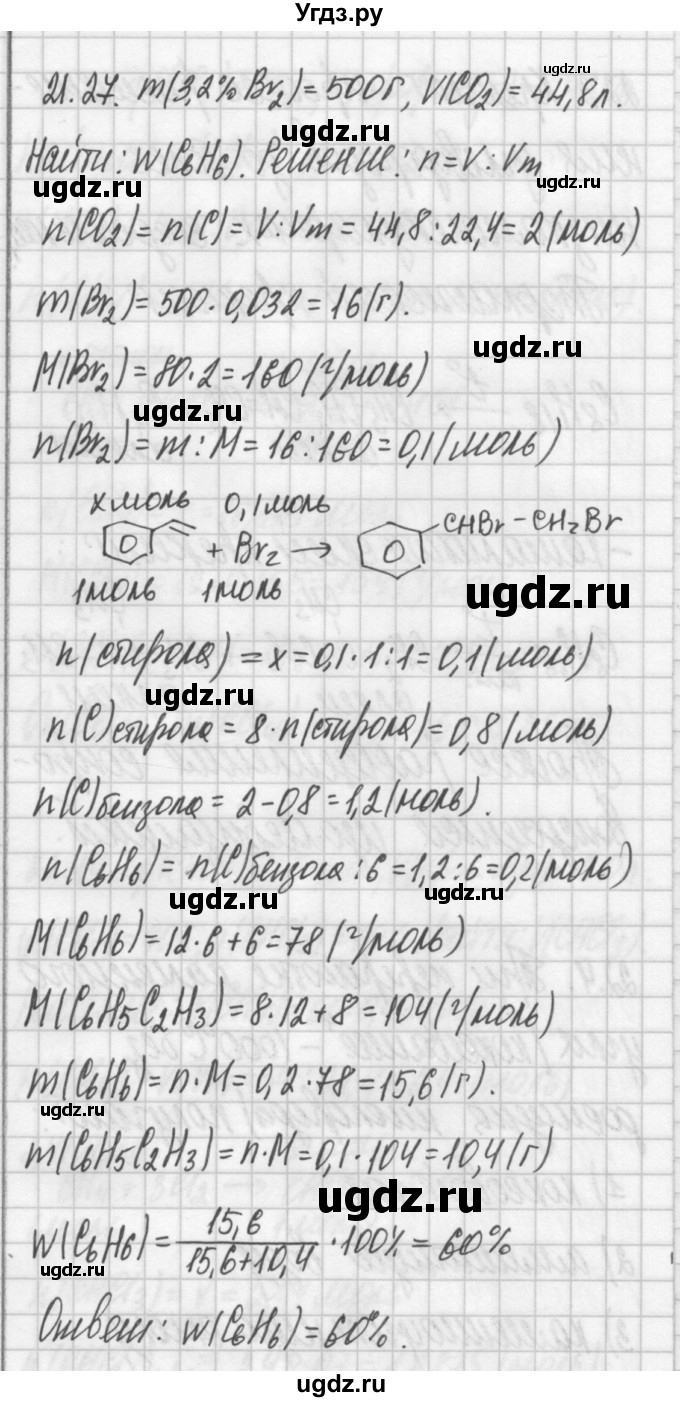 Угдз.ру
21.27. m(3,2% Br₂) = 500г, V(CO₂) = 44,8л.
ugdz.ru
ugdz.ru
Найти: W(C₆H₆). Решение: n = V : Vm
ugdz.ru
ugdz.ru
n(CO₂) = n(C) = V : Vm = 44,8 : 22,4 = 2(моль)
m(Br₂) = 500 · 0,032 = 16(г).
ugdz.ru
M(Br₂) = 80 · 2 = 160(г/моль)
ugdz.ru
n(Br₂) = m : M = 16 : 160 = 0,1(моль)
x моль 0,1 моль
+ Br₂ → CHBr – CH₂Br
1 моль 1 моль
ugdz.ru
n(стирола) = x = 0,1 · 1 : 1 = 0,1(моль)
ugdz.ru
n(C) стирола = 8 · n(стирола) = 0,8(моль)
n(C) бензола = 2 – 0,8 = 1,2(моль).
n(C₆H₆) = n(C) бензола : 6 = 1,2 : 6 = 0,2(моль)
ugdz.ru
ugdz.ru
M(C₆H₆) = 12 · 6 + 6 = 78(г/моль)
M(C₆H₅C₂H₃) = 8 · 12 + 8 = 104(г/моль)
m(C₆H₆) = n · M = 0,2 · 78 = 15,6(г).
ugdz.ru
m(C₆H₅C₂H₃) = n · M = 0,1 · 104 = 10,4(г)
ugdz.ru
W(C₆H₆) = 15,6 / 15,6 + 10,4 · 100% = 60%
ugdz.ru
Ответ: W(C₆H₆) = 60%.
ugdz.ru